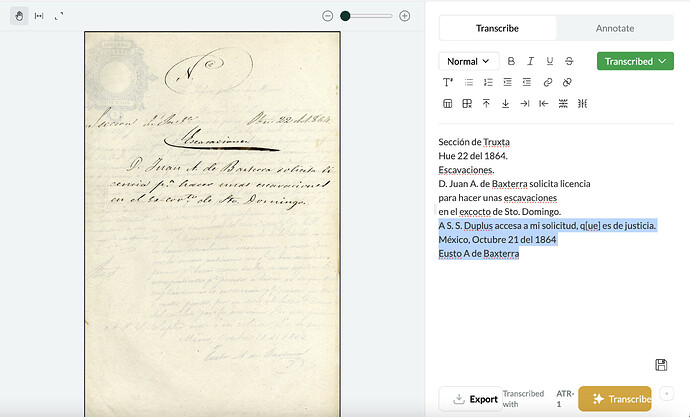 Transcribe
Annotate
Normal
B I U S
Transcribed
Nº
Sección de
22 del 1864
Escavaciones
D. Juan A. de Baxterra solicita li
cencia pª hacer unas escavaciones
en el ex-convto de Sto. Domingo.
Sección de Truxta
Hue 22 del 1864.
Escavaciones.
D. Juan A. de Baxterra solicita licencia
para hacer unas escavaciones
en el excocto de Sto. Domingo.
A S. S. Duplus accesa a mi solicitud, q[ue] es de justicia.
México, Octubre 21 del 1864
Eusto A de Baxterra
Export
Transcribed with
ATR-1
Transcribe